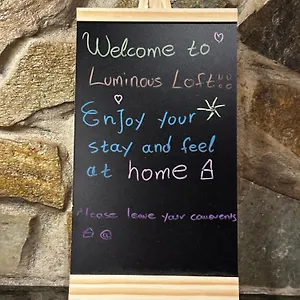 Welcome to
Luminous Loft!!
Enjoy your
stay and feel
at home
Please leave your comments
@